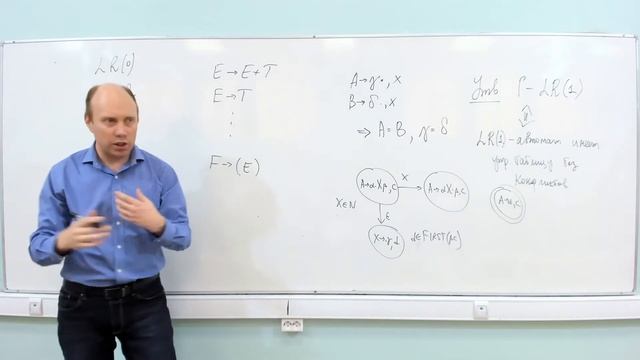 LR(0)
E → E+T
E → T
⋮
F → (E)
A → γ·, x
B → δ·, x
⇒ A = B, γ = δ
A→α·Xβ, c
X
A→αX·β, c
X∈N
ε
X→·γ, d
d∈FIRST(βc)
Утв Г - LR(1)
⇕
LR(1)-автомат имеет
упр. таблицу без
конфликтов